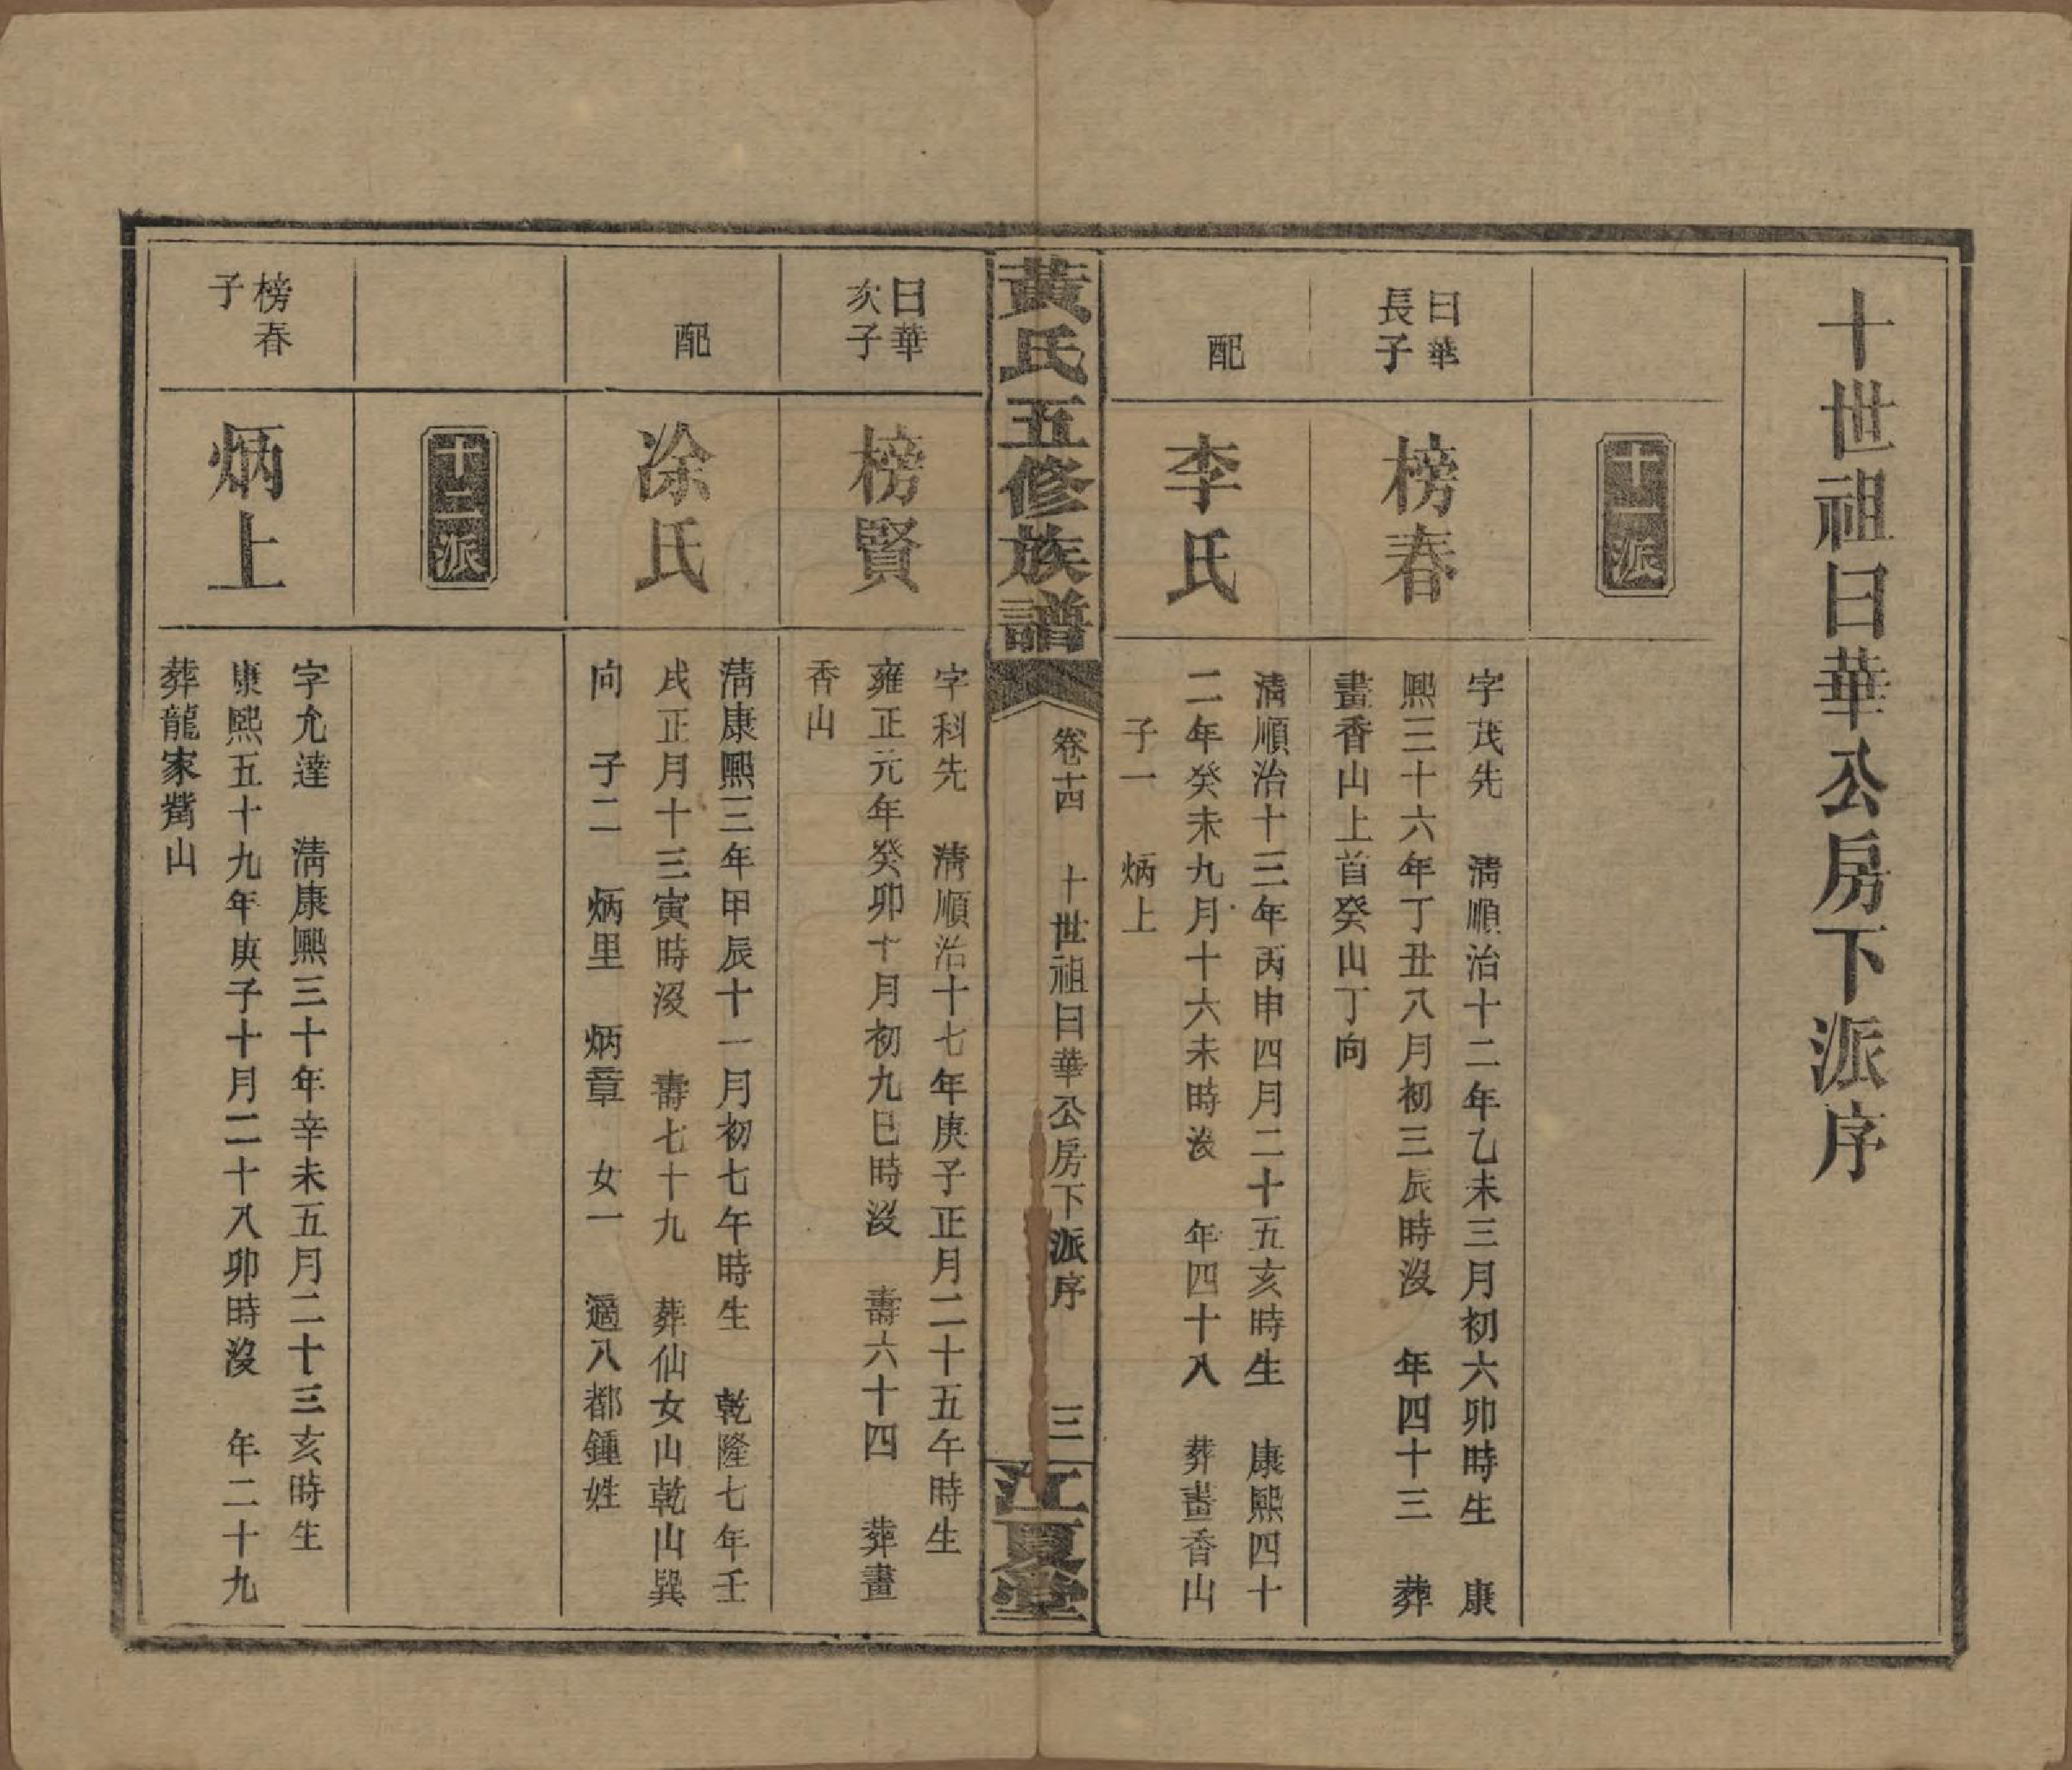 十世祖曰華公房下派序
十一派
曰華
長子
榜春
字茂先　清順治十二年乙未三月初六卯時生　康
熙三十六年丁丑八月初三辰時沒　年四十三　葬
畫香山上首癸山丁向
配
李氏
清順治十三年丙申四月二十五亥時生　康熙四十
二年癸未九月十六未時沒　年四十八　葬畫香山
子一　炳上
黃氏五修族譜
卷十四　十世祖曰華公房下派序　三
江夏堂
曰華
次子
榜賢
字科先　清順治十七年庚子正月二十五午時生
雍正元年癸卯十月初九巳時沒　壽六十四　葬畫
香山
配
涂氏
清康熙三年甲辰十一月初七午時生　乾隆七年壬
戌正月十三寅時沒　壽七十九　葬仙女山乾山巽
向　子二　炳里　炳章　女一　適八都鍾姓
十二派
榜春
子
炳上
字允達　清康熙三十年辛未五月二十三亥時生
康熙五十九年庚子十月二十八卯時沒　年二十九
葬龍家嵴山